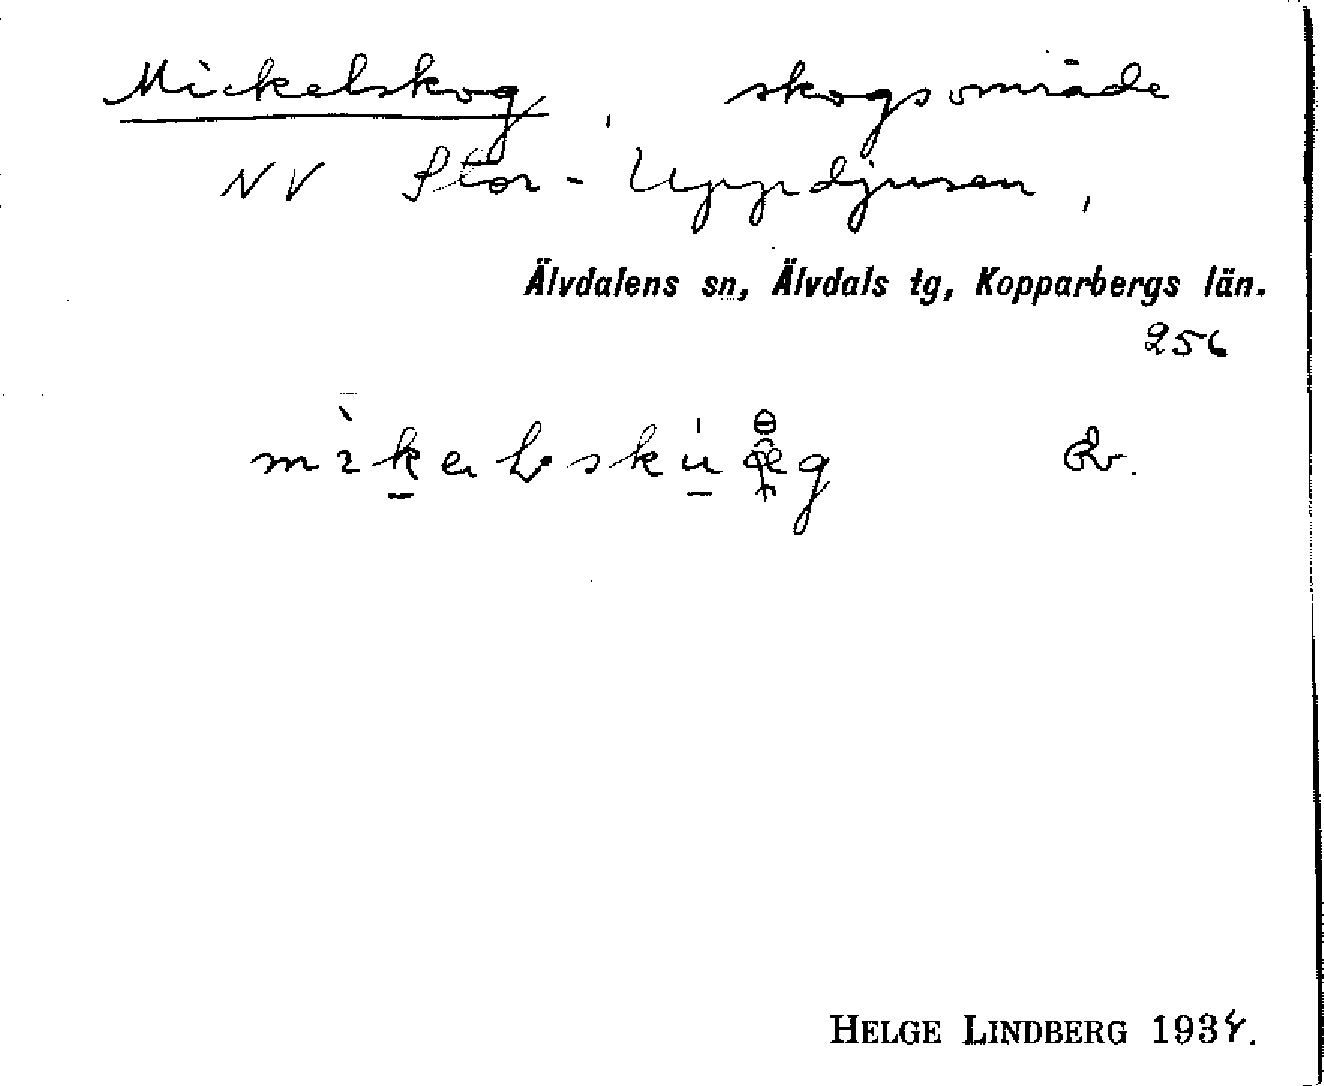 Mickelskog, skogsområde
NV Stor-Uppdjusen,
Älvdalens sn, Älvdals tg, Kopparbergs län.
256
HELGE LINDBERG 1934.